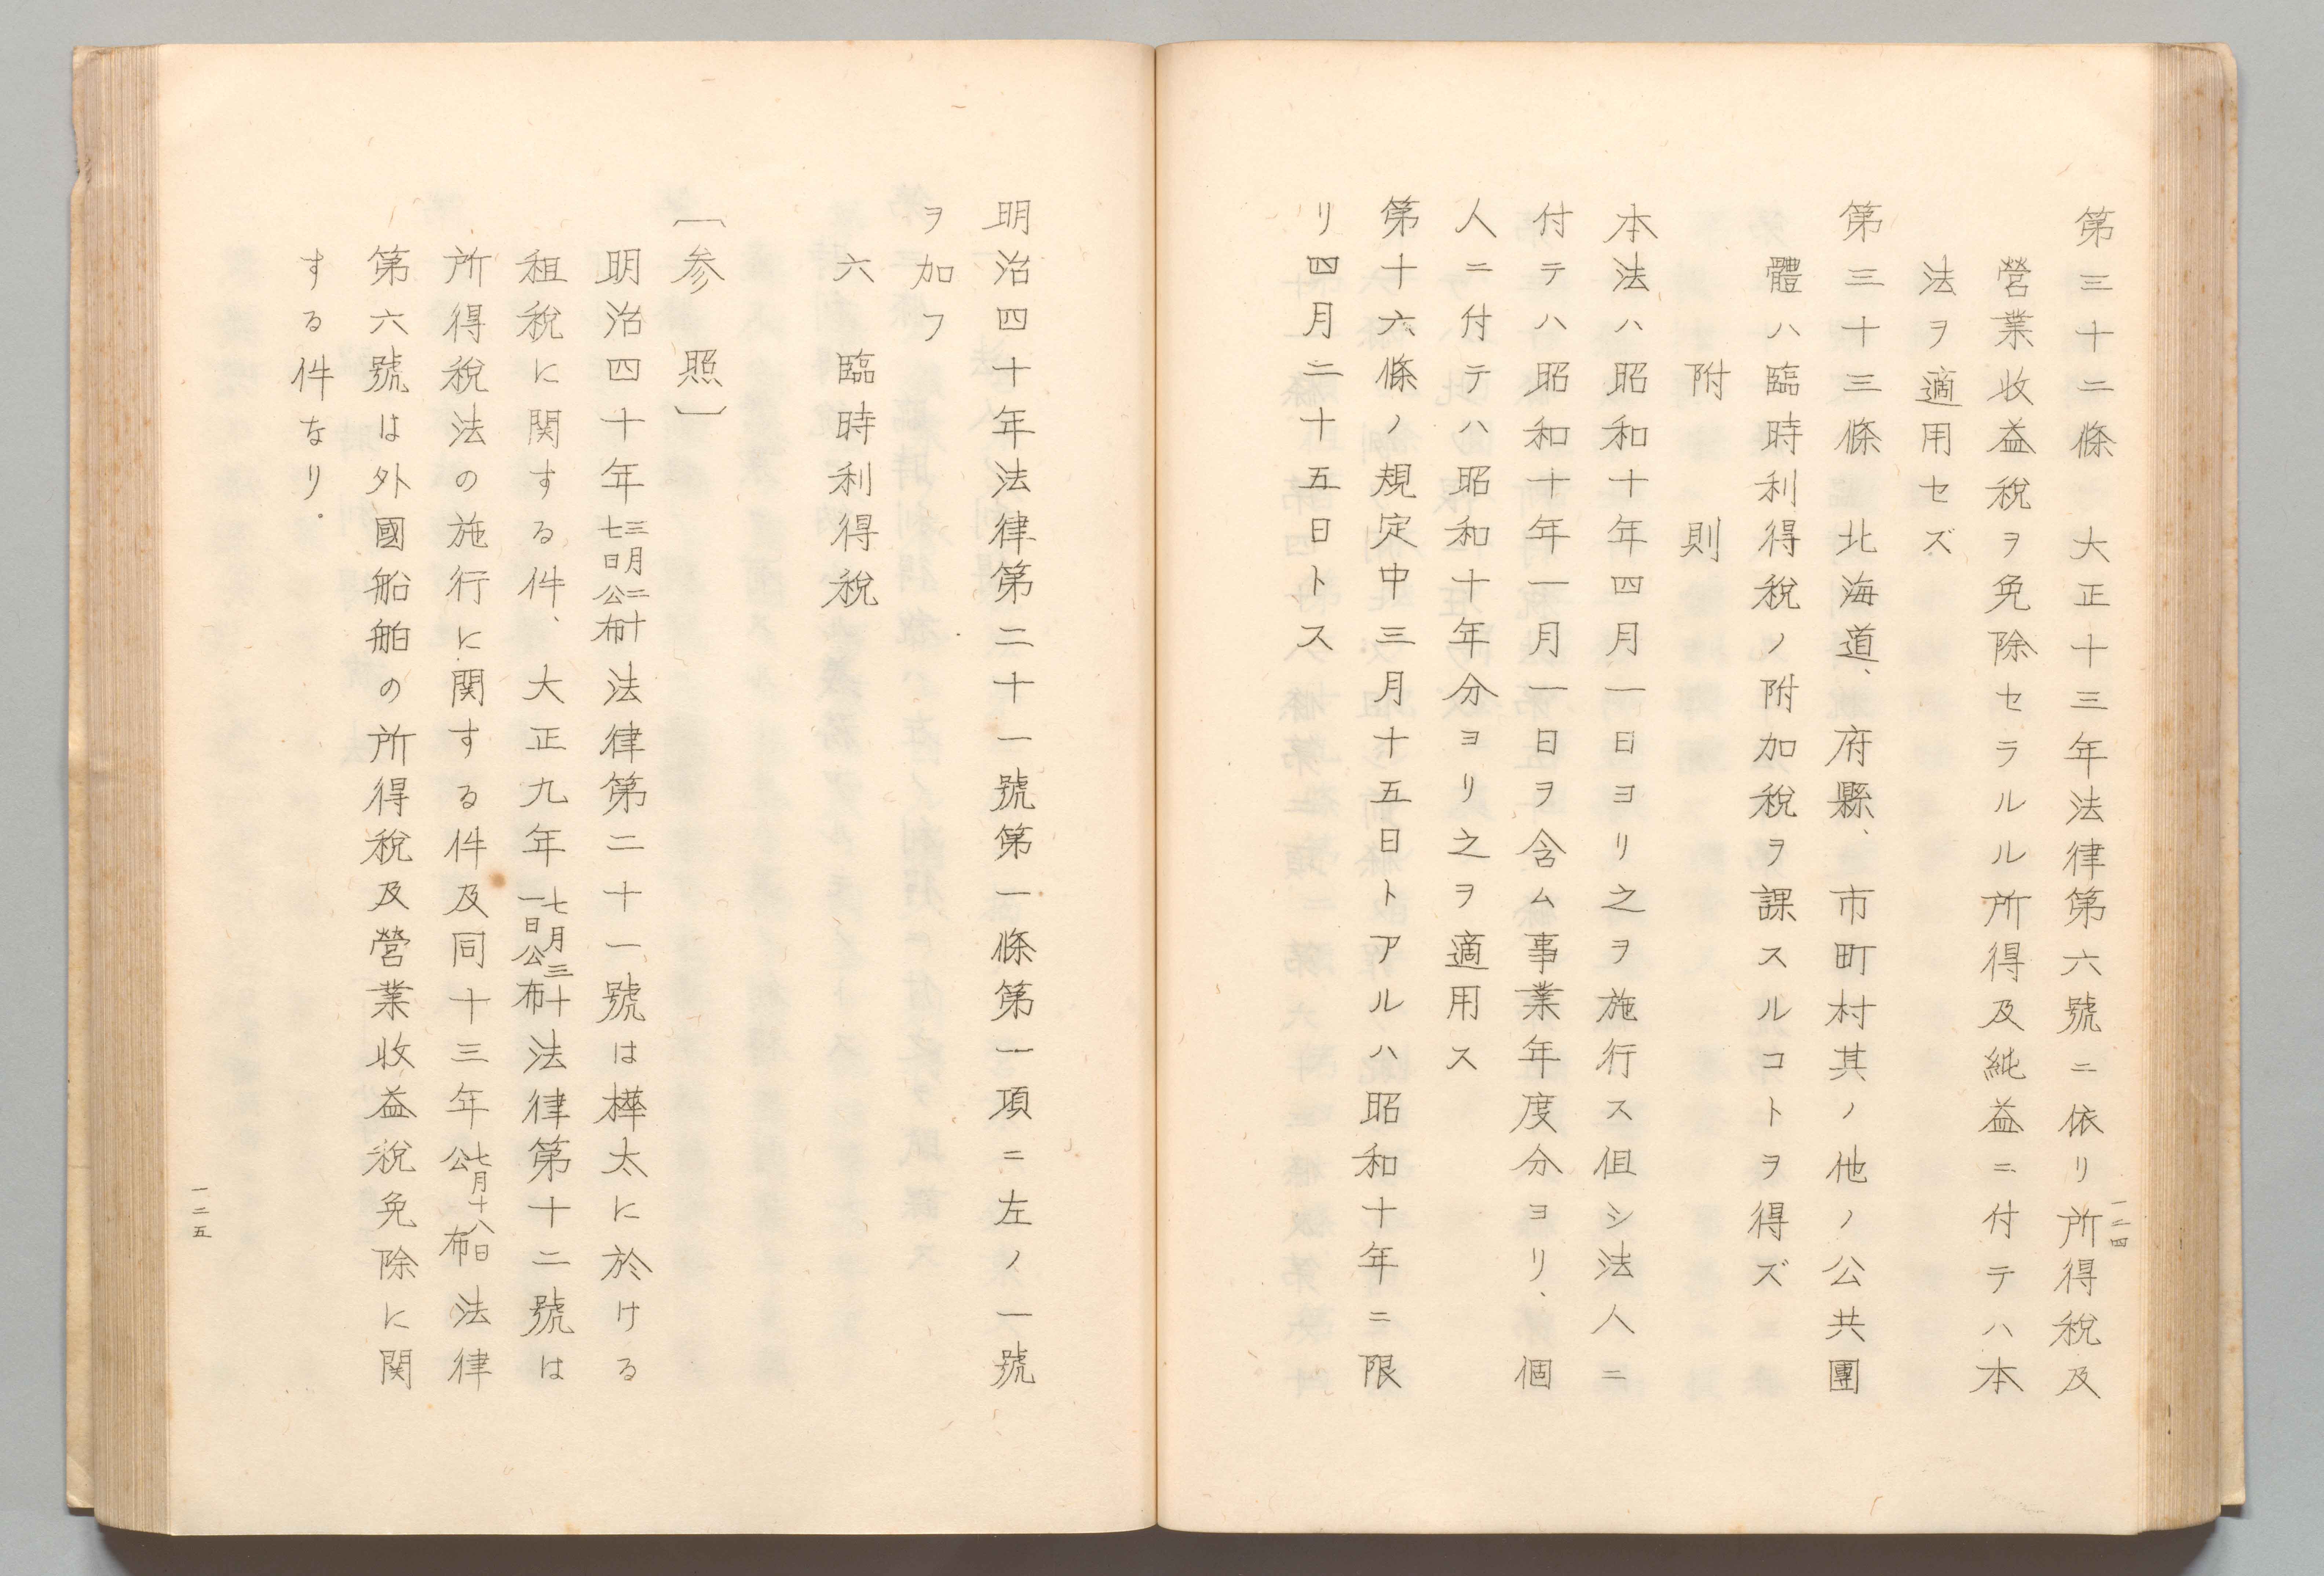 第三十二條　大正十三年法律第六號ニ依リ所得稅及
營業收益稅ヲ免除セラルル所得及純益ニ付テハ本
法ヲ適用セズ
第三十三條　北海道、府縣、市町村其ノ他ノ公共團
體ハ臨時利得稅ノ附加稅ヲ課スルコトヲ得ズ
附　則
本法ハ昭和十年四月一日ヨリ之ヲ施行ス但シ法人ニ
付テハ昭和十年一月一日ヲ含ム事業年度分ヨリ、個
人ニ付テハ昭和十年分ヨリ之ヲ適用ス
第十六條ノ規定中三月十五日トアルハ昭和十年ニ限
リ四月二十五日トス
一二四
明治四十年法律第二十一號第一條第一項ニ左ノ一號
ヲ加フ
六　臨時利得稅
〔参照〕
明治四十年三月二十七日公布法律第二十一號は樺太に於ける
租稅に関する件、大正九年七月三十一日公布法律第十二號は
所得稅法の施行に関する件及同十三年七月十八日公布法律
第六號は外國船舶の所得稅及營業收益稅免除に関
する件なり.
一二五